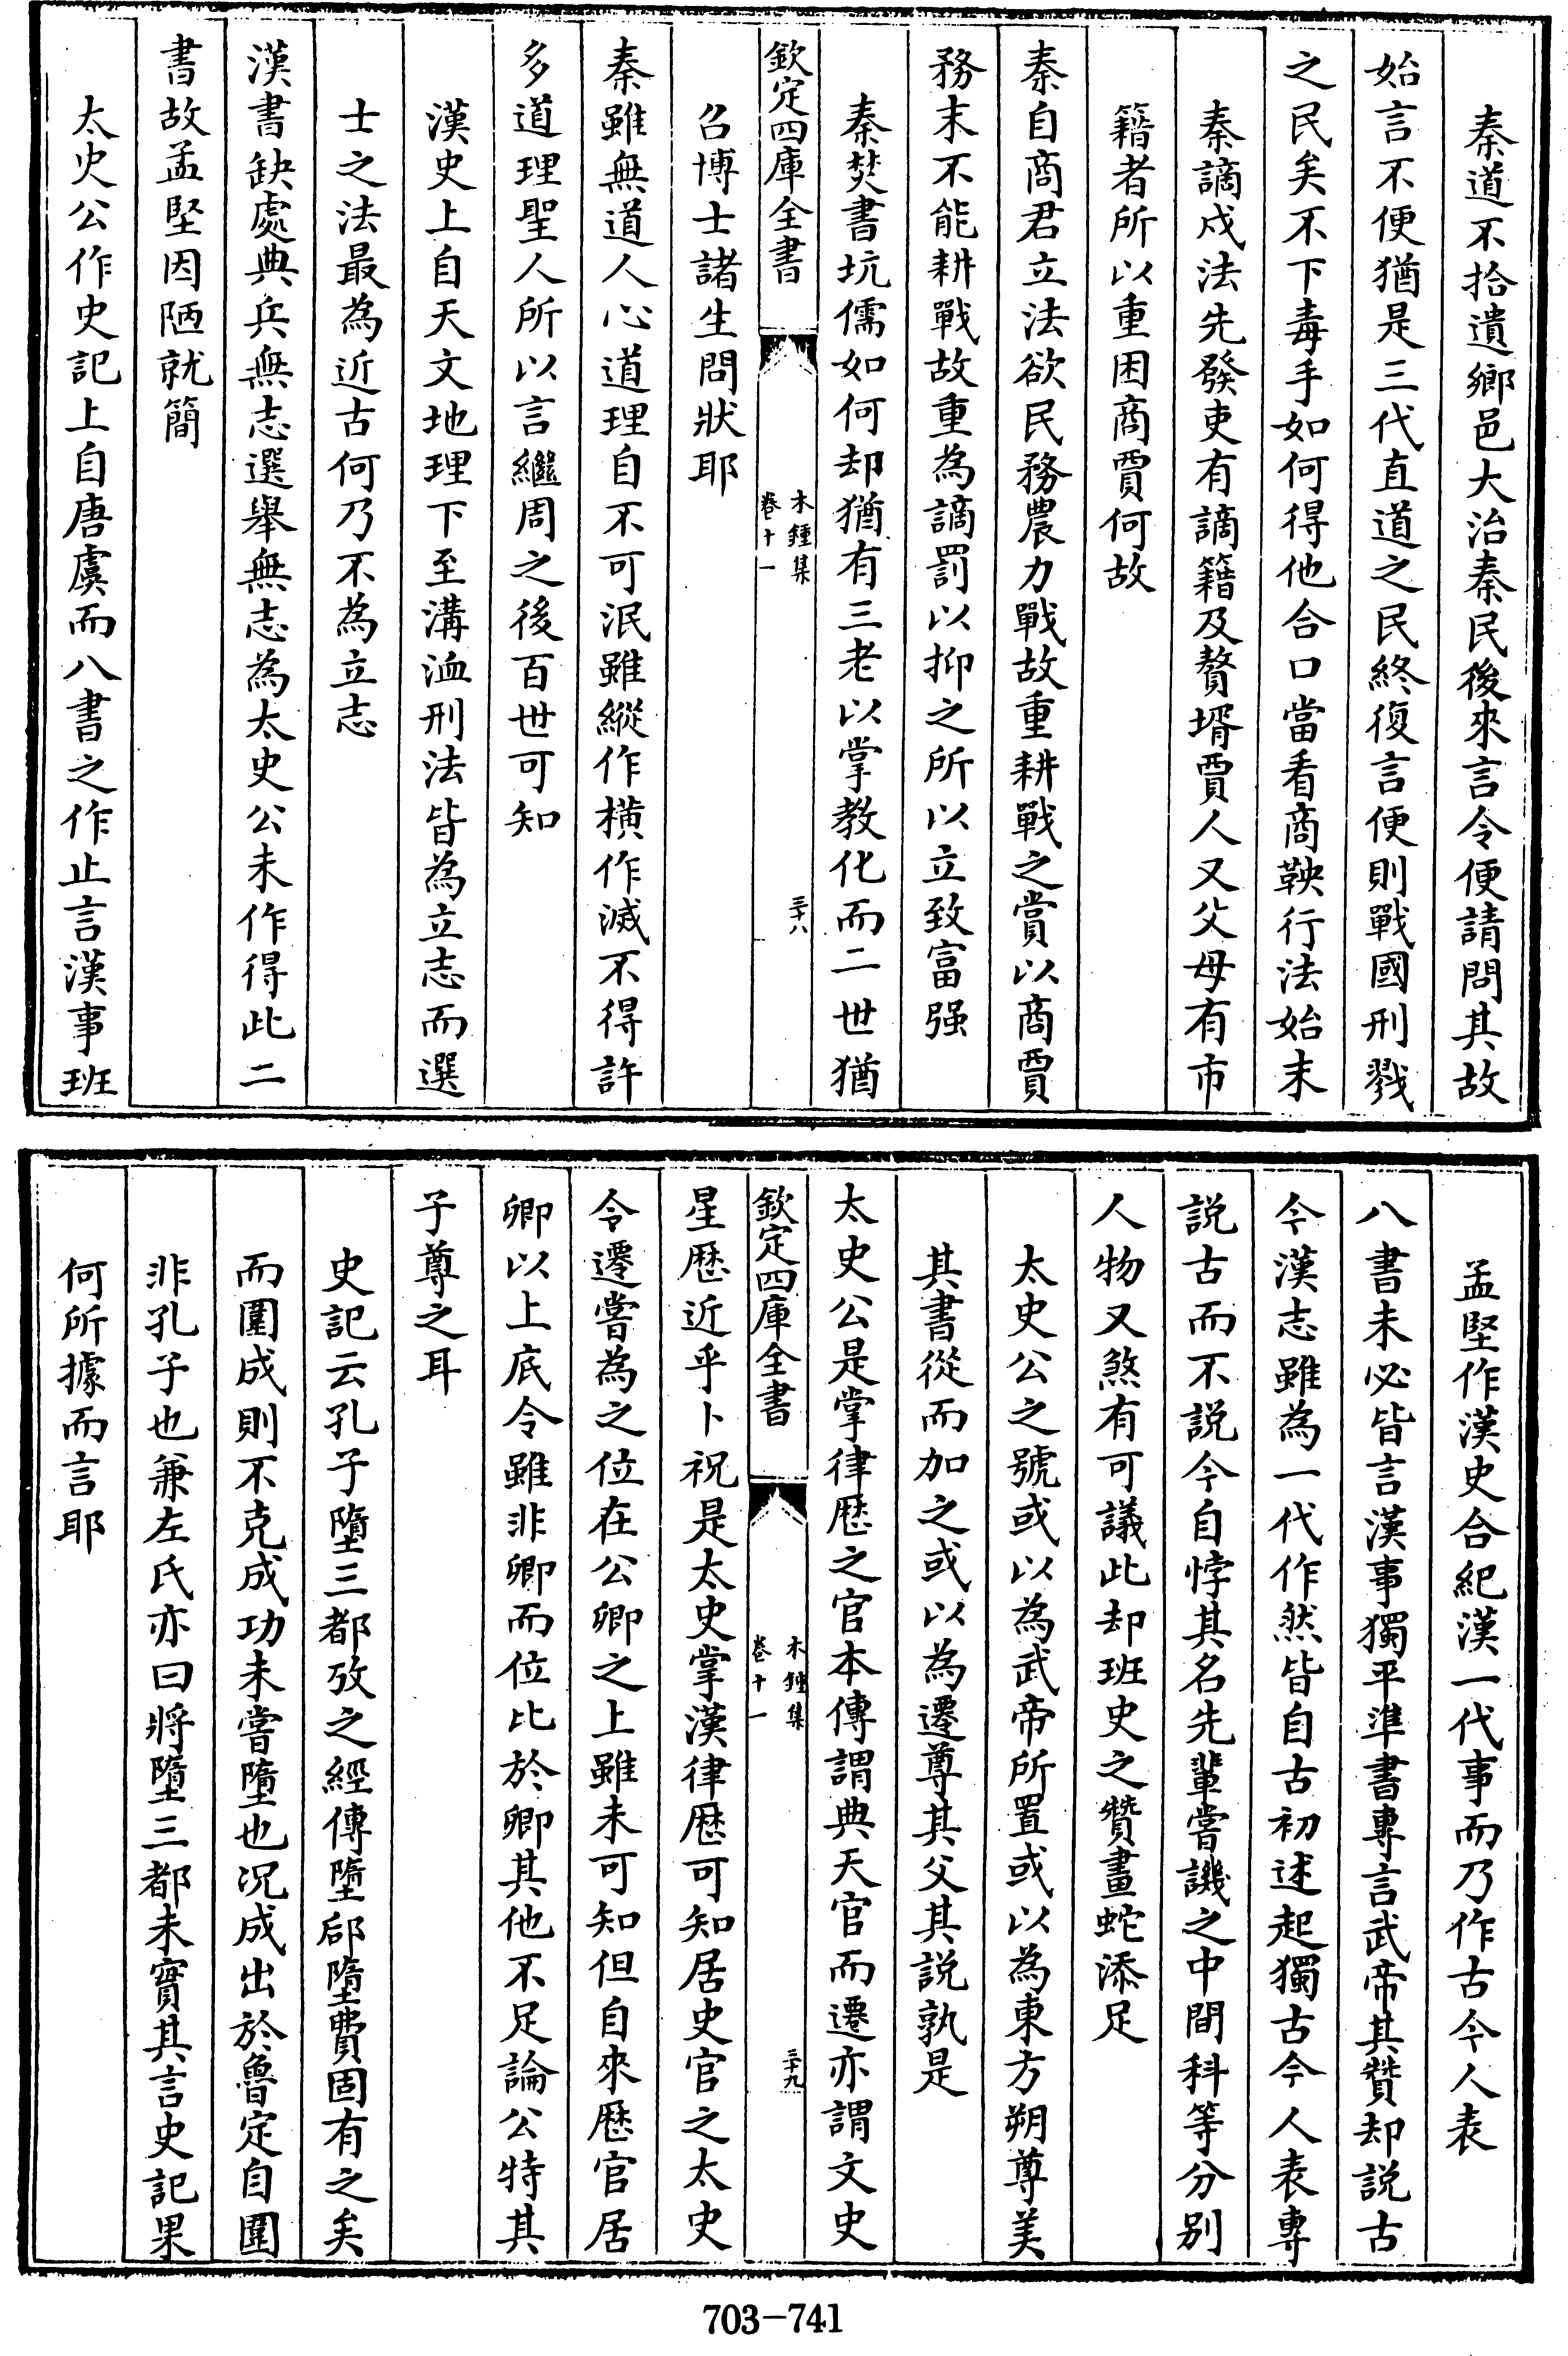 秦道不拾遺鄉邑大治秦民後來言令便請問其故
始言不便猶是三代直道之民終復言便則戰國刑戮
之民矣不下毒手如何得他合口當看商鞅行法始末
秦謫戍法先發吏有謫籍及贅壻賈人又父母有市
籍者所以重困商賈何故
秦自商君立法欲民務農力戰故重耕戰之賞以商賈
務末不能耕戰故重為謫罰以抑之所以立致富强
秦焚書坑儒如何却猶有三老以掌教化而二世猶
欽定四庫全書
木鍾集
卷十一
三十八
召博士諸生問狀耶
秦雖無道人心道理自不可泯雖縱作橫作滅不得許
多道理聖人所以言繼周之後百世可知
漢史上自天文地理下至溝洫刑法皆為立志而選
士之法最為近古何乃不為立志
漢書缺處典兵無志選舉無志為太史公未作得此二
書故孟堅因陋就簡
太史公作史記上自唐虞而八書之作止言漢事班
孟堅作漢史合紀漢一代事而乃作古今人表
八書未必皆言漢事獨平準書專言武帝其贊却説古
今漢志雖為一代作然皆自古初述起獨古今人表專
説古而不説今自悖其名先輩嘗譏之中間科等分别
人物又煞有可議此却班史之贊畫蛇添足
太史公之號或以為武帝所置或以為東方朔尊美
其書從而加之或以為遷尊其父其説孰是
太史公是掌律歷之官本傳謂典天官而遷亦謂文史
欽定四庫全書
木鍾集
卷十一
三十九
星歷近乎卜祝是太史掌漢律歷可知居史官之太史
令遷嘗為之位在公卿之上雖未可知但自來歷官居
卿以上底令雖非卿而位比於卿其他不足論公特其
子尊之耳
史記云孔子墮三都攷之經傳墮郈墮費固有之矣
而圍成則不克成功未嘗墮也况成出於魯定自圍
非孔子也兼左氏亦曰將墮三都未實其言史記果
何所據而言耶
703-741